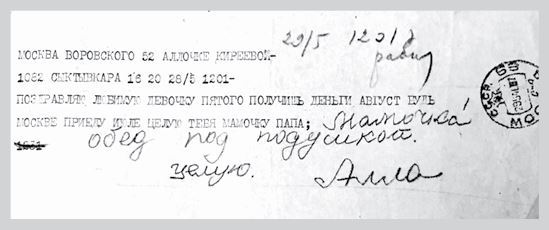 29/5
МОСКВА ВОРОВСКОГО 52 АЛЛОЧКЕ КИРЕЕВОЙ-
1082 СЫКТЫВКАРА 16 20 28/5 1201-
ПОЗДРАВЛЯЮ ЛЮБИМУЮ ДЕВОЧКУ ПЯТОГО ПОЛУЧИШЬ ДЕНЬГИ АВГУСТ БУДЬ
МОСКВЕ ПРИЕДУ ИЮЛЕ ЦЕЛУЮ ТЕБЯ МАМОЧКУ ПАПА; Мамочка!
обед под подушкой.
целую. Алла
СССР
МОС